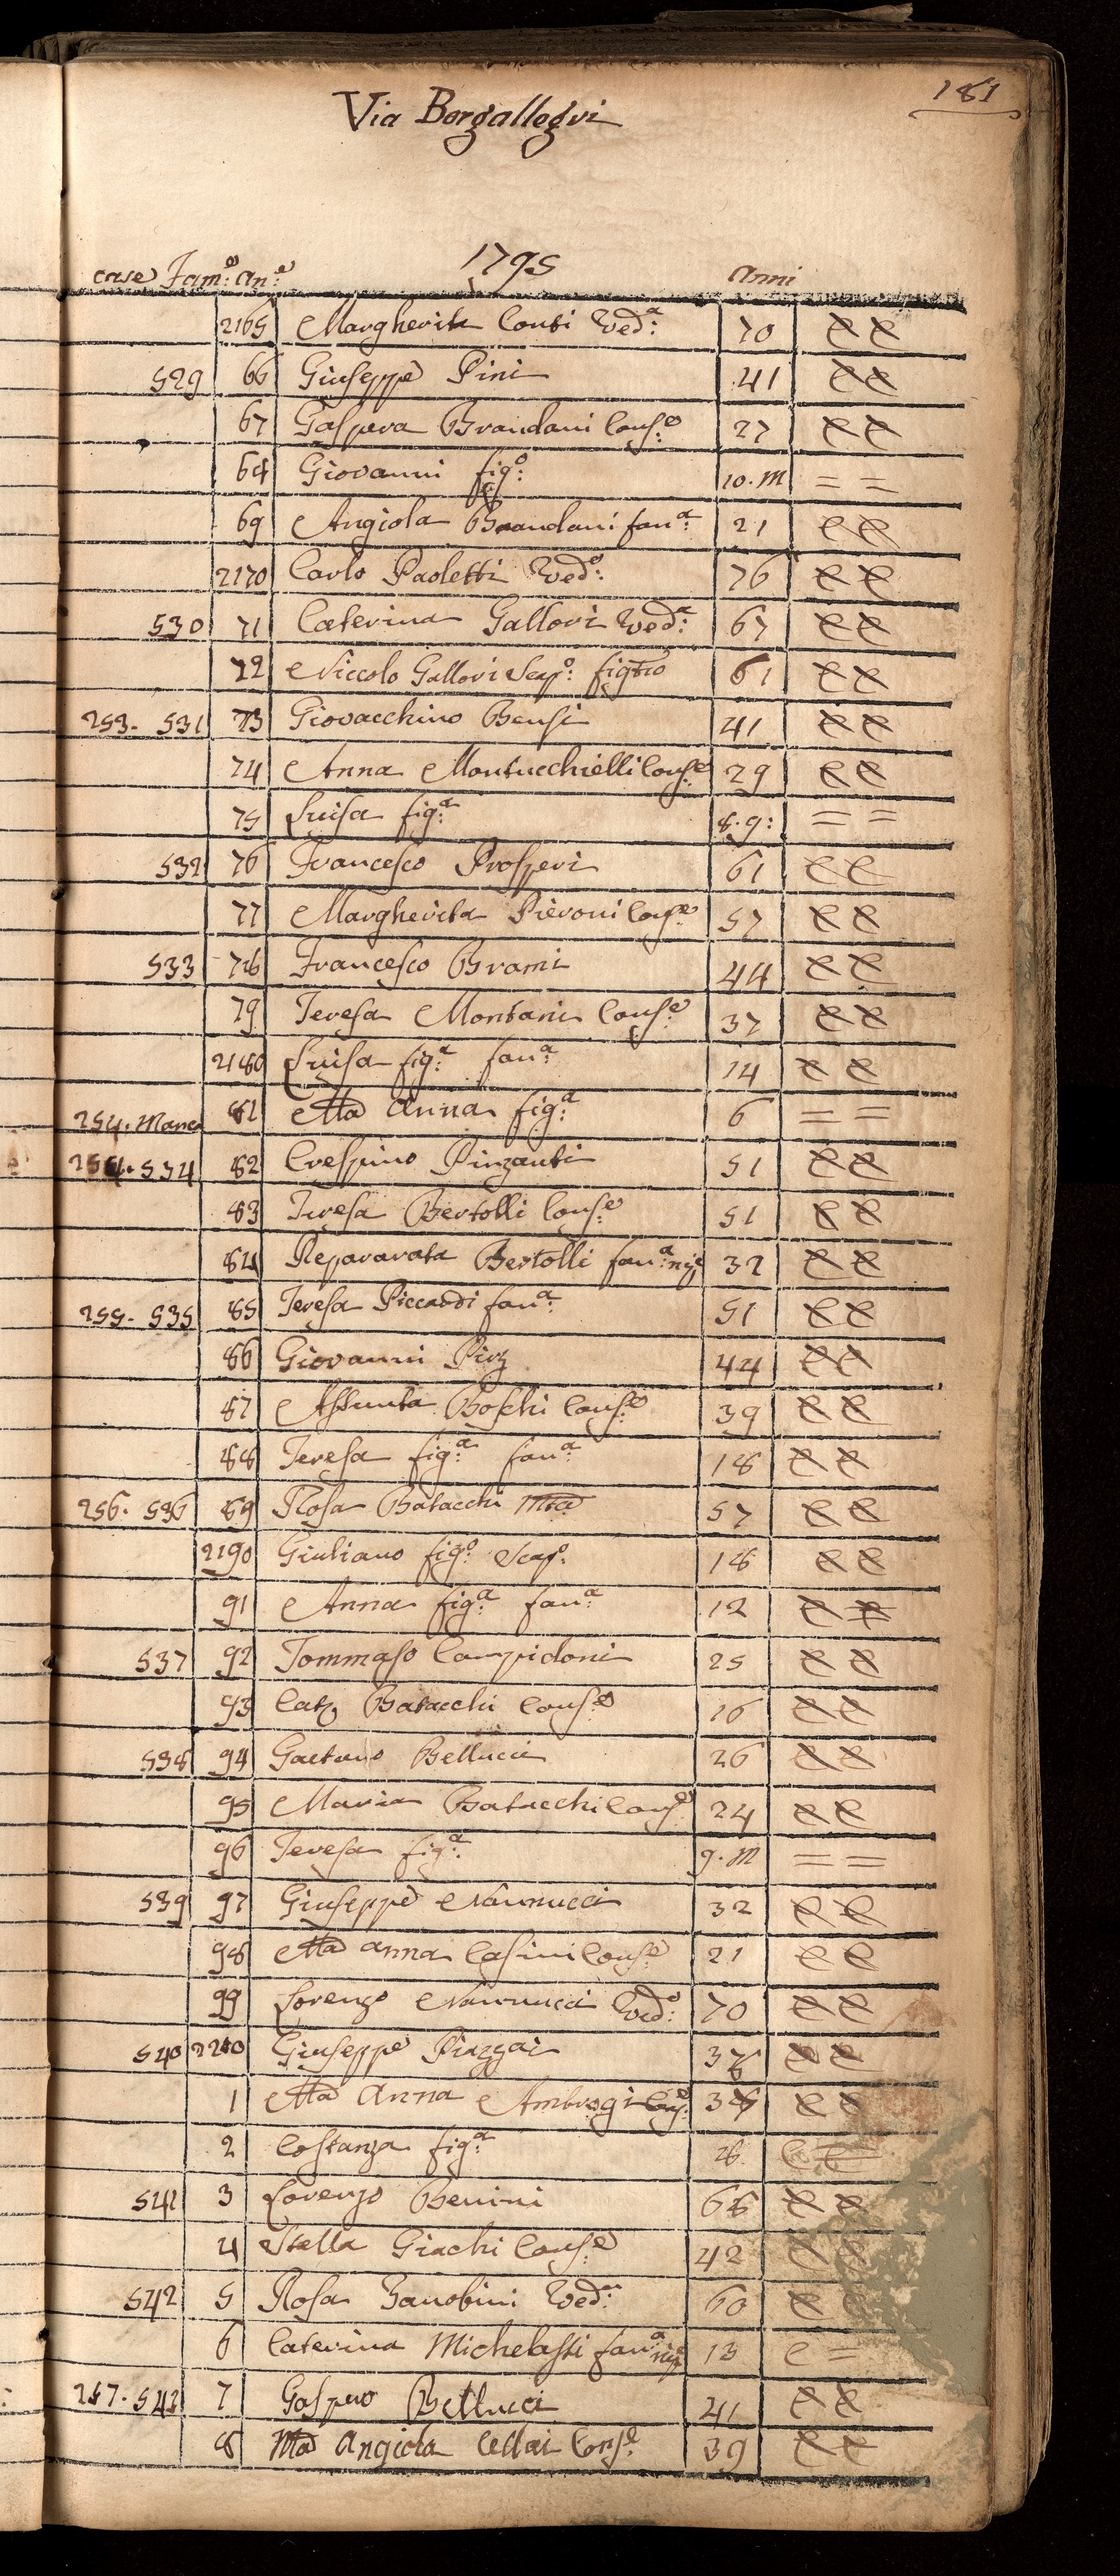 181
Via Borgallegri
1795
case Fam:e an:e anni
2165 Margherita Conti Ved:a 70
529 66 Giuseppe Pini 41
67 Gaspera Brandani Cons:e 27
68 Giovanni fig:o 10. m = =
69 Angiola Brandani fan:a 21
2170 Carlo Paoletti Ved:o 76
530 71 Caterina Gallori Ved:a 67
72 Niccolo Gallori Scap:o figlio 61
253. 531 73 Giovacchino Bensi 41
74 Anna Montucchielli Cons:e 29
75 Luisa fig:a 8. g: = =
532 76 Francesco Prosperi 61
77 Margherita Pieroni Cons:e 57
533 78 Francesco Brami 44
79 Teresa Montani Cons:e 37
2180 Luisa fig:a fan:a 14
81 Ma Anna fig:a 6 = =
254. Manca
254. 534 82 Crespino Pinzauti 51
83 Teresa Bertolli Cons:e 51
84 Reparata Bertolli fan:a nip:e 32
255. 535 85 Teresa Piccardi fan:a 51
86 Giovanni Pirz 44
87 Assunta Boschi Cons:e 39
88 Teresa fig:a fan:a 18
256. 536 89 Rosa Batacchi 57
2190 Giuliano fig:o Scap:o 18
91 Anna fig:a fan:a 12
537 92 Tommaso Campidoni 25
93 Cat:a Batacchi Cons:e 16
538 94 Gaetano Bellucci 26
95 Maria Batacchi Cons:e 24
96 Teresa fig:a 9. m = =
539 97 Giuseppe Nannucci 32
98 Ma Anna Casini Cons:e 21
99 Lorenzo Nannucci Ved:o 70
540 2200 Giuseppe Piazzai 38
1 Ma Anna Ambrogi Cons:e 36
2 Costanza fig:a
541 3 Lorenzo Benini 68
4 Stella Giachi Cons:e 42
542 5 Rosa Zanobini Ved:a 60
6 Caterina Michelassi fan:a nip:e 13
257. 543 7 Gaspero Bellucci 41
8 Ma Angiola Cellai Cons:e 39